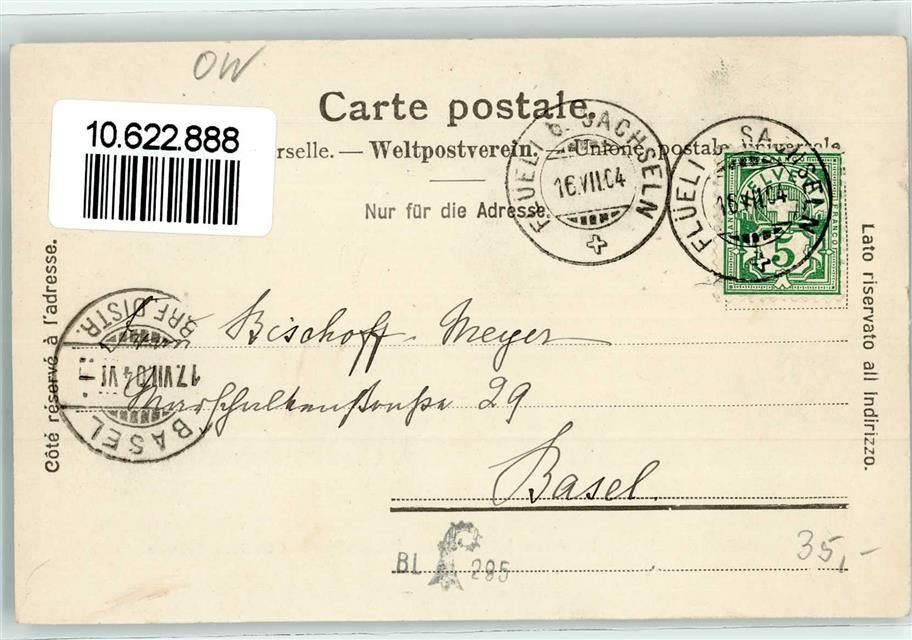 OW
Carte postale.
10.622.888
rselle. — Weltpostverein. — Unione postale universale
Nur für die Adresse.
FLUELI b. SACHSELN
16.VII.04
FLUELI
SACHSELN
16.VII.04
HELVETIA
5
Côté réservé à l'adresse.
Lato riservato all indirizzo.
BASEL
17.VII.04 VI
BRF. DISTR.
Bischoff-Meyer
29
Basel.
BL 295
35,-